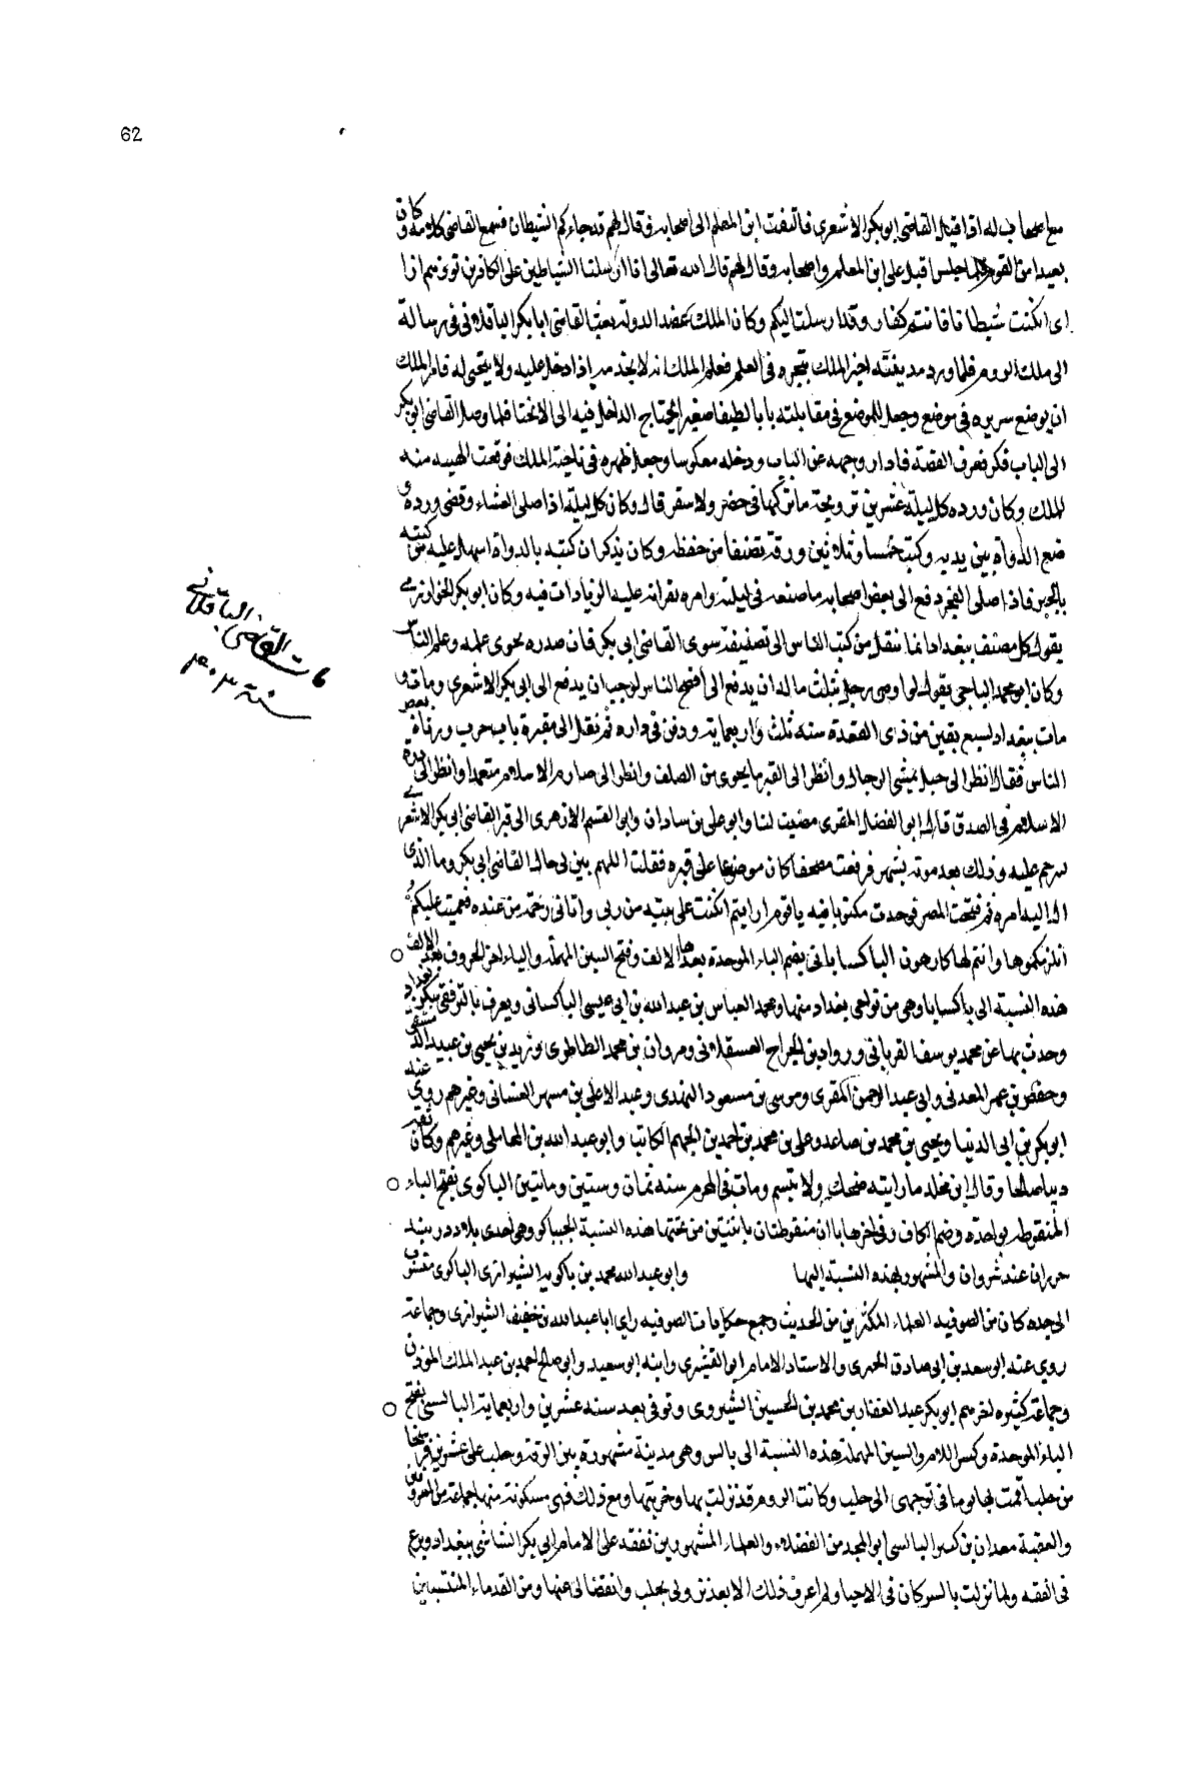 62
مع اصحابه له اذا قبل القاضي ابو بكر الاشعري فالتفت ابن المعلم الى اصحابه وقال لهم قد جاءكم الشيطان فسمع القاضي كلامه وكان
بعيدا من القوم فلما جلس اقبل على ابن المعلم واصحابه وقال لهم قال الله تعالى انا ارسلنا الشياطين على الكافرين تؤزهم ازا
اي ان كنت شيطانا فانتم كفار وقد ارسلت اليكم وكان الملك عضد الدولة بعث القاضي ابا بكر الباقلاني في رسالة
الى ملك الروم فلما ورد مدينته اخبر الملك بتبحره في العلم فعلم الملك انه لا يخدمه اذا دخل عليه ولا ينحني له فامر الملك
ان يوضع سريره في موضع وجعل للموضع في مقابلته بابا لطيفا صغيرا يحتاج الداخل فيه الى الانحنا فلما وصل القاضي ابو بكر
الى الباب فكر فعرف القصة فادار وجهه عن الباب ودخله معكوسا وجعل ظهره في ناحية الملك فوقعت الهيبه منه
للملك وكان ورده كل ليلة عشرين ترويحة ما تركها في حضر ولا سفر قال وكان كل ليلة اذا صلى العشاء وقضى ورده و
ضع الدواة بين يديه وكتب خمسا وثلاثين ورقة تصنفا من حفظه وكان يذكر ان كتبه بالدواة اسهل عليه من كتبه
بالحبر فاذا صلى الفجر دفع الى بعض اصحابه ما صنعه في ليلته وامره بقراته عليه الزيادات فيه وكان ابو بكر الخوارزمي
يقول كل مصنف ببغداد انما ينقل من كتب الناس الى تصنيفه سوى القاضي ابي بكر فان صدره يحوي علمه وعلم الناس
وكان ابو محمد الباجي يقول لو اوصى رجل بثلث ماله ان يدفع الى افصح الناس لوجب ان يدفع الى ابي بكر الاشعري ومات و
مات ببغداد لسبع بقين من ذي القعدة سنه ثلث واربعماية ودفن في داره ثم نقل الى مقبرة باب حرب ورثاه بعض
الناس فقال انظر الى جبل يمشي الرجال وانظر الى القبر ما يحوي من الصلف وانظر الى صارم الاسلام متغمدا وانظر الى درة
الاسلام في الصدف قال ابو الفضل المقرى مضيت انا وابو علي بن شادان وابو القسم الازهري الى قبر القاضي ابي بكر الاشعري
يترحم عليه وذلك بعد موته بشهر فرفعت مصحفا كان موضوعا على قبره فقلت اللهم بين لي حال القاضي ابي بكر وما الذي
ال اليه امره ثم فتحت المصحف فوجدت مكتوبا فيه يا قوم ارايتم ان كنت على بينه من ربي واتاني رحمة من عنده فعميت عليكم
انلزمكموها وانتم لها كارهون الباكساياني بضم الباء الموحدة بعدها الالف وفتح السين المهملة والياء اخر الحروف بعد الالف
هذه النسبة الى باكسايا وهي من نواحي بغداد منها ومحمد العباس بن عبد الله بن ابي عيسى الباكساني ويعرف بالترقفي سكن بغداد
وحدث بها عن محمد يوسف الفريابي ورواد بن الجراح العسقلاني ومروان بن محمد الطاطري ويزيد بن يحيى بن عبيد الدمشقي
وحفص بن عمر العدني وابي عبد الرحمن المقرى وموسى بن مسعود النهدي وعبد الاعلى بن مسهر الغساني وغيرهم روى عنه
ابو بكر بن ابي الدنيا ويحيى بن محمد بن صاعد وعلي بن محمد بن احمد بن الجهم الكاتب وابو عبد الله بن المحاملي وغيرهم وكان ثقة
دينا صالحا وقال ابن مخلد ما رايته ضحك ولا تبسم ومات في المحرم سنه ثمان وستين وماتين الباكوي بفتح الباء
المنقوطه بواحدة وضم الكاف وفي اخرها باان منقوطتان باثنتين من تحتها هذه النسبة الى باكو وهي احدى بلاد دربند
خزران عند شروان والمشهور بهذه النسبة اليها وابو عبد الله محمد بن باكويه الشيرازي الباكوي منسوب
الى جده كان من الصوفيه العلماء المكثرين من الحديث وجمع حكايات الصوفيه راى ابا عبد الله بن خفيف الشيرازي وجماعة
روى عنه ابو سعد بن ابي صادق الحيري والاستاد الامام ابو القشيري وابنه ابو سعيد وابو صالح احمد بن عبد الملك الموذن
وجماعة كثيره اخرهم ابو بكر عبد الغفار بن محمد بن الحسين الشيروي وتوفي بعد سنه عشرين واربعماية البالسي بفتح
الباء الموحدة وكسر اللام والسين المهملة هذه النسبة الى بالس وهي مدينة مشهورة بين الرقة وحلب على عشرين فرسخا
من حلب اقمت بها يوما في توجهي الى حلب وكانت الروم قد نزلت بها وخربتها ومع ذلك فهي مسكونة منها جماعة من المعروفين
والعقبة معدان بن كسير البالسي ابو المجد من الفضلاء والعلماء المشهورين تفقه على الامام ابي بكر الشاشي ببغداد وبرع
في الفقه ولما نزلت بالس كان في الاحيا ولم اعرف ذلك الا بعد نزولي بحلب وانفصالي عنها ومن القدماء المنتسبين
مات القاضي الباقلاني
سنة ٤٠٣